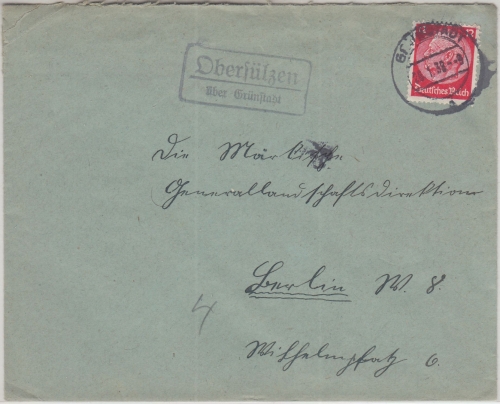 Obersülzen
über Grünstadt
Deutsches Reich
Die Märkische
Generallandschaftsdirektion
Berlin W. 8.
Wilhelmplatz 6.
4